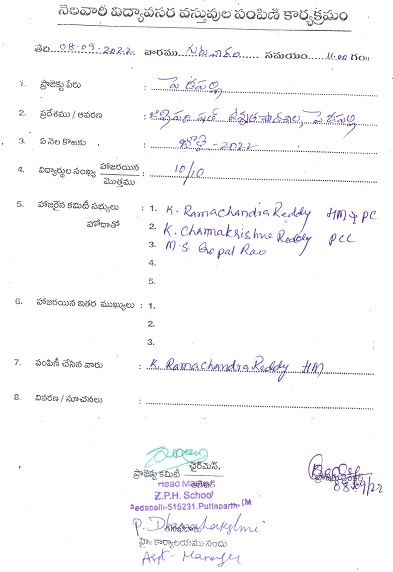 నెలవారీ విద్యావసర వస్తువుల పంపిణి కార్యక్రమం
తేది 08-09-2022 వారము గురువారం సమయం 11.00 గం॥
1. ప్రాజెక్టు పేరు : పెదపల్లి
2. ప్రదేశము / ఆవరణ : జిల్లా పరిషత్ ఉన్నత పాఠశాల, పెదపల్లి
3. ఏ నెల కొఱకు : జూలై - 2022
4. విద్యార్థుల సంఖ్య హాజరయిన/మొత్తము : 10/10
5. హాజరైన కమిటీ సభ్యులు : 1. K. Ramachandra Reddy HM & PC
హోదాతో 2. K. Channakrishna Reddy PCC
3. M.S Gopal Rao
4.
5.
6. హాజరయిన ఇతర ముఖ్యులు : 1.
2.
3.
7. పంపిణీ చేసిన వారు : K. Ramachandra Reddy HM
8. వివరణ / సూచనలు :
ఛైర్మెన్,
ప్రాజెక్టు కమిటీ
Head Master
Z.P.H. School
Pedaballi-515231, Puttaparthi (M
08/09/22
P. Dhanalakshmi
హై: కార్యాలయము నందు
Asst. Manager